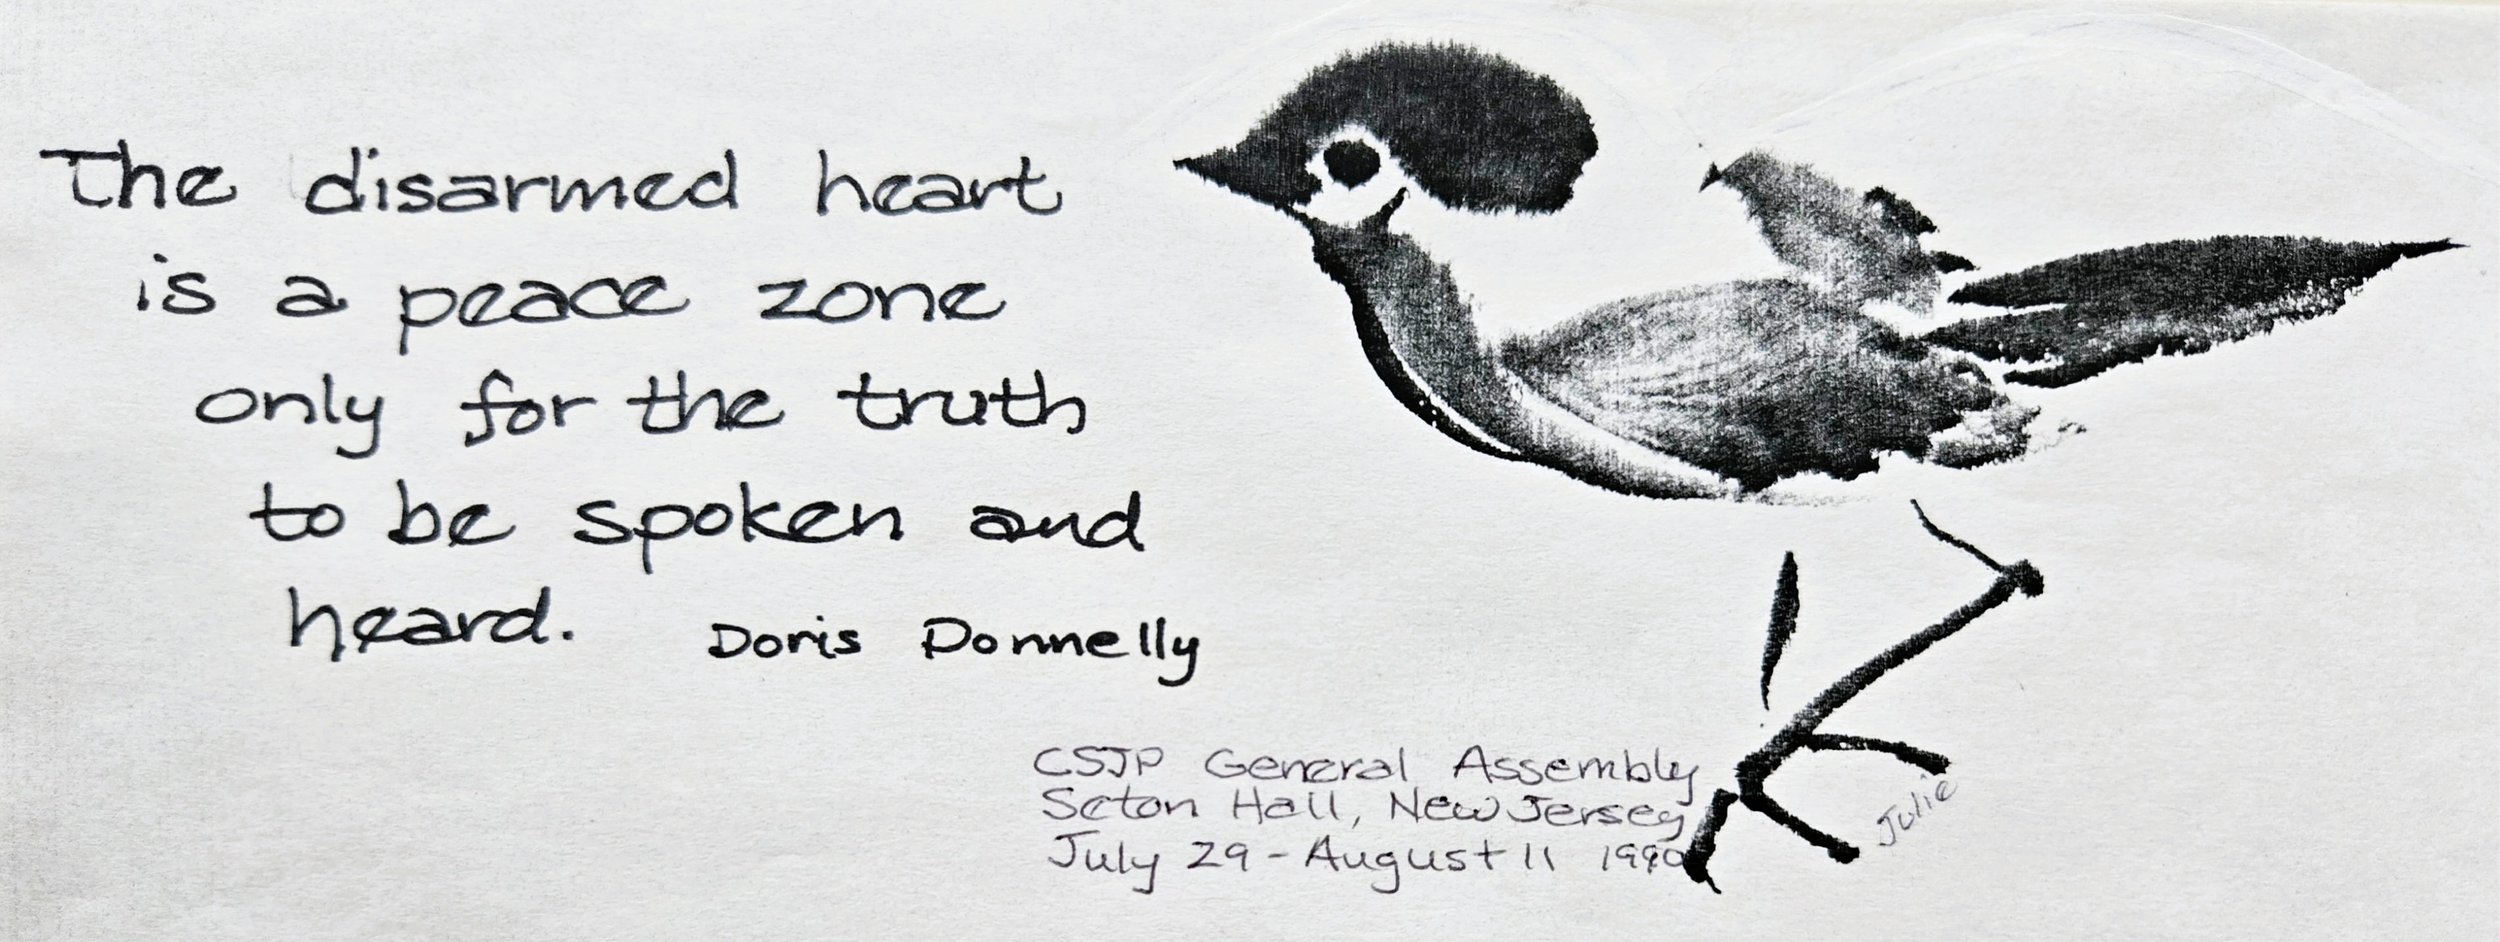 The disarmed heart
is a peace zone
only for the truth
to be spoken and
heard. Doris Donnelly
CSJP General Assembly
Seton Hall, New Jersey
July 29 - August 11 1990
Julie